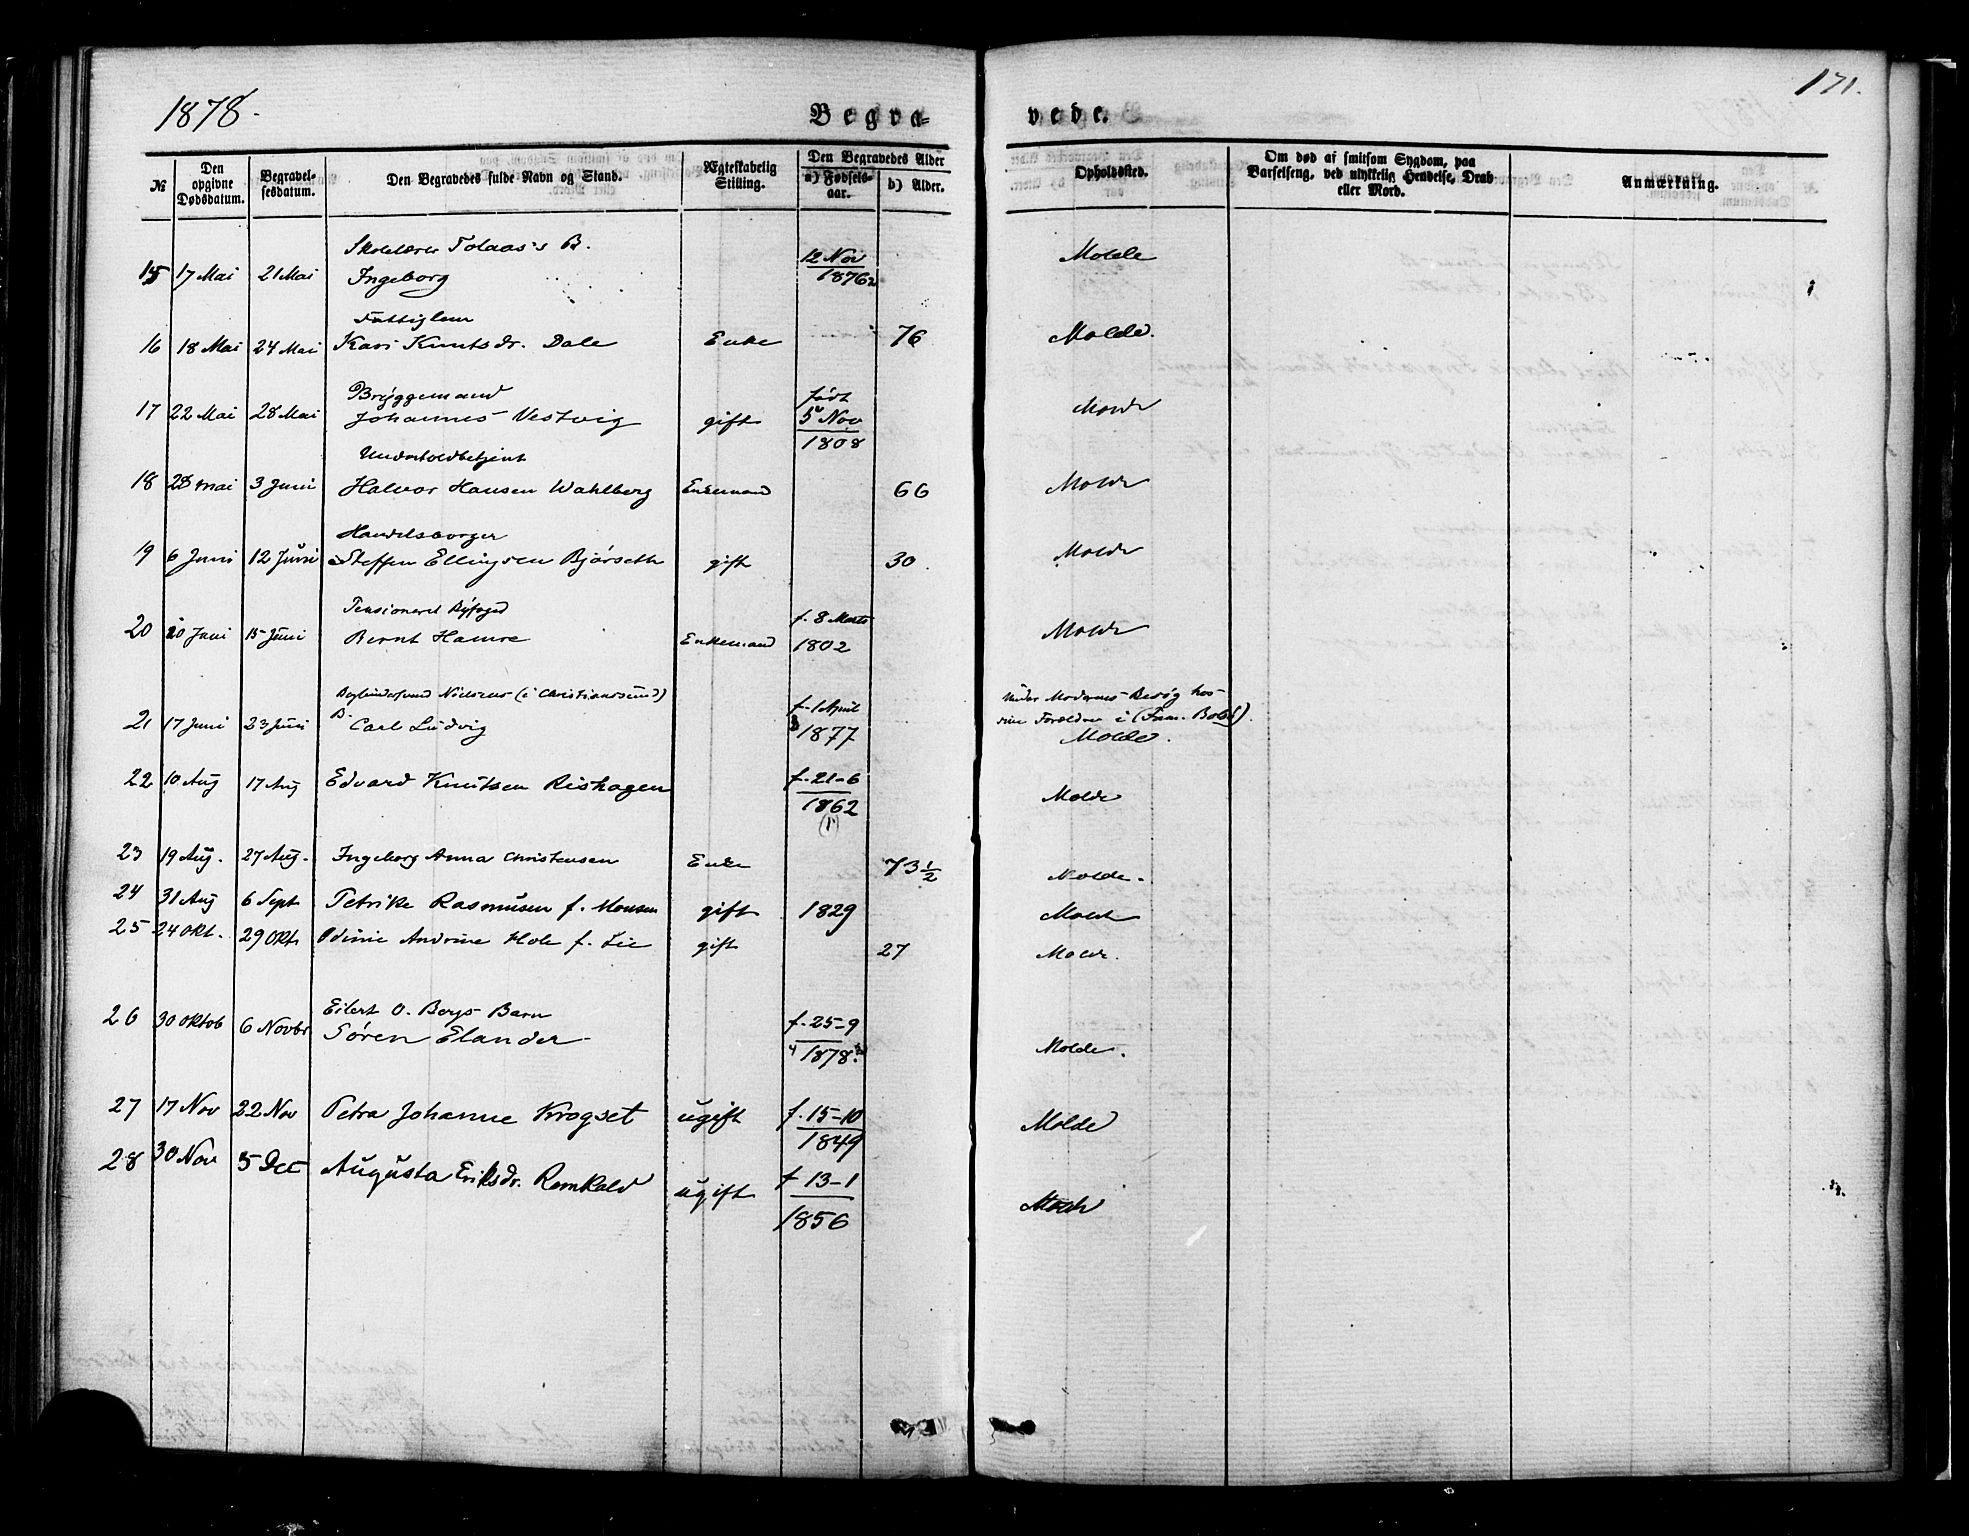 1878.
Begra=
vede.
171.
№
Den opgivne Dødsdatum.
Begravelsesdatum.
Den Begravedes fulde Navn og Stand.
Ægteskabelig Stilling.
Den Begravedes Alder
a) Fødselsaar.
b) Alder.
Opholdssted.
Om død af smitsom Sygdom, paa Barselseng, ved ulykkelig Hendelse, Drab eller Mord.
Anmærkning.
Skolelærer Tolaas's B.
15 17 Mai 21 Mai Ingeborg 12 Nov 1876 Molde
Fattiglem
16 18 Mai 24 Mai Kari Knutsdr. Dale Enke 76 Molde.
Bryggemand
17 22 Mai 28 Mai Johannes Vestvig gift født 5 Nov 1808 Molde
Underholdbetjent
18 28 mai 3 Juni Halvor Hansen Wahlberg Enkemand 66 Molde
Handelsborger
19 6 Juni 12 Juni Steffen Ellingsen Bjørseth gift 30. Molde
Pensioneret Byfoged
20 10 Juni 15 Juni Bernt Hamre Enkemand f. 8 Marts 1802 Molde
Nielsens (i Christianssund) B.
21 17 Juni 23 Juni Carl Ludvig f. 1 April 1877 Under Moderens Besøg hos sine Forældre i (Fam. ) Molde.
22 10 Aug 17 Aug Edvard Knutsen Rishagen f. 21-6 1862 Molde
23 19 Aug. 27 Aug. Ingeborg Anna Christensen Enke 73 ½ Molde.
24 31 Aug 6 Sept Petrike Rasmusen f. Monsen gift 1829 Molde
25 24 Okt. 29 Okt Odinie Andrine Hole f. Lie gift 27 Molde.
Eilert O. Bergs Barn
26 30 Oktob 6 Novbr Søren Elander f. 25-9 1878 Molde.
27 17 Nov 22 Nov Petra Johanne Krogset ugift f. 15-10 1849 Molde
28 30 Nov 5 Dec Augusta Eriksdr. ugift f 13-1 1856 Molde